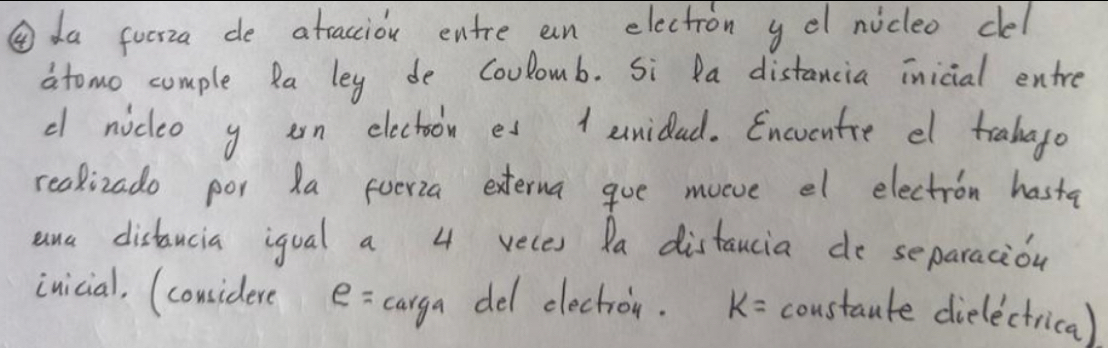 ④ La fuerza de atracción entre un electrón y el núcleo del
átomo cumple la ley de Coulomb. Si la distancia inicial entre
el núcleo y un electrón es 1 unidad. Encuentre el trabajo
realizado por la fuerza externa que mueve el electrón hasta
una distancia igual a 4 veces la distancia de separación
inicial. (considere e = carga del electrón. K = constante dieléctrica).